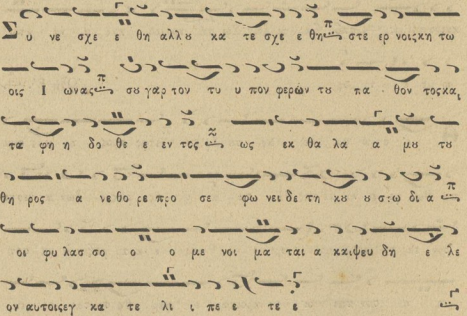 Σ υ νε σχε ε θη αλλȣ κα τε σχε ε θη στε ερ νοις κη τω
οις Ι ωνας σȣ γαρ τον τυ υ πον φερων τȣ πα θον τος και
τα φη η δο θε ε εν τος ως εκ θα λα α μȣ τȣ
θη ρος α νε θο ρε προ σε φω νει δε τη κȣ ȣ στω δι α
οι φυ λασ σο ο ο με νοι μα ται α και ψευ δη ε λε
ον αυτοις εγ κα τε λι ι πε ε τε ε